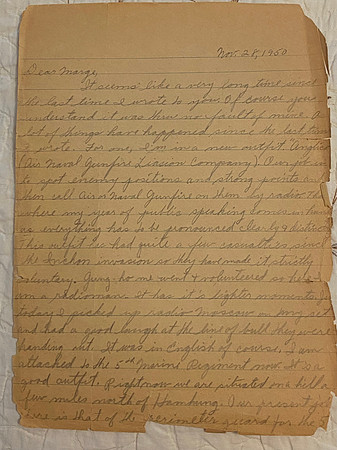 Nov. 28, 1950
Dear Marge,
It seems like a very long time since
the last time I wrote to you. Of course you
understand it was thru no fault of mine. A
lot of things have happened since the last time
I wrote. For me, I'm in a new outfit "Anglico
(Air Naval Gunfire Liason Company). Our job is
to spot enemy positions and strong points and
then call Air & Naval Gunfire on them by radio.
where my year of public speaking comes in
as everything has to be pronounced clearly & 
This outfit has had quite a few casualties since
the Inchon invasion so they have made it strictly
voluntary. Gung-ho me went & volunteered so here I
am a radioman. It has it's lighter moments,
today I picked up radio Moscow on my set
and had a good laugh at the line of bull they were
handing out. It was in English of course. I am
attached to the 5th Marine Regiment now. It is a
good outfit. Right now we are situated on a hill a
few miles north of Hambung. Our present job
here is that of the perimeter guard for the